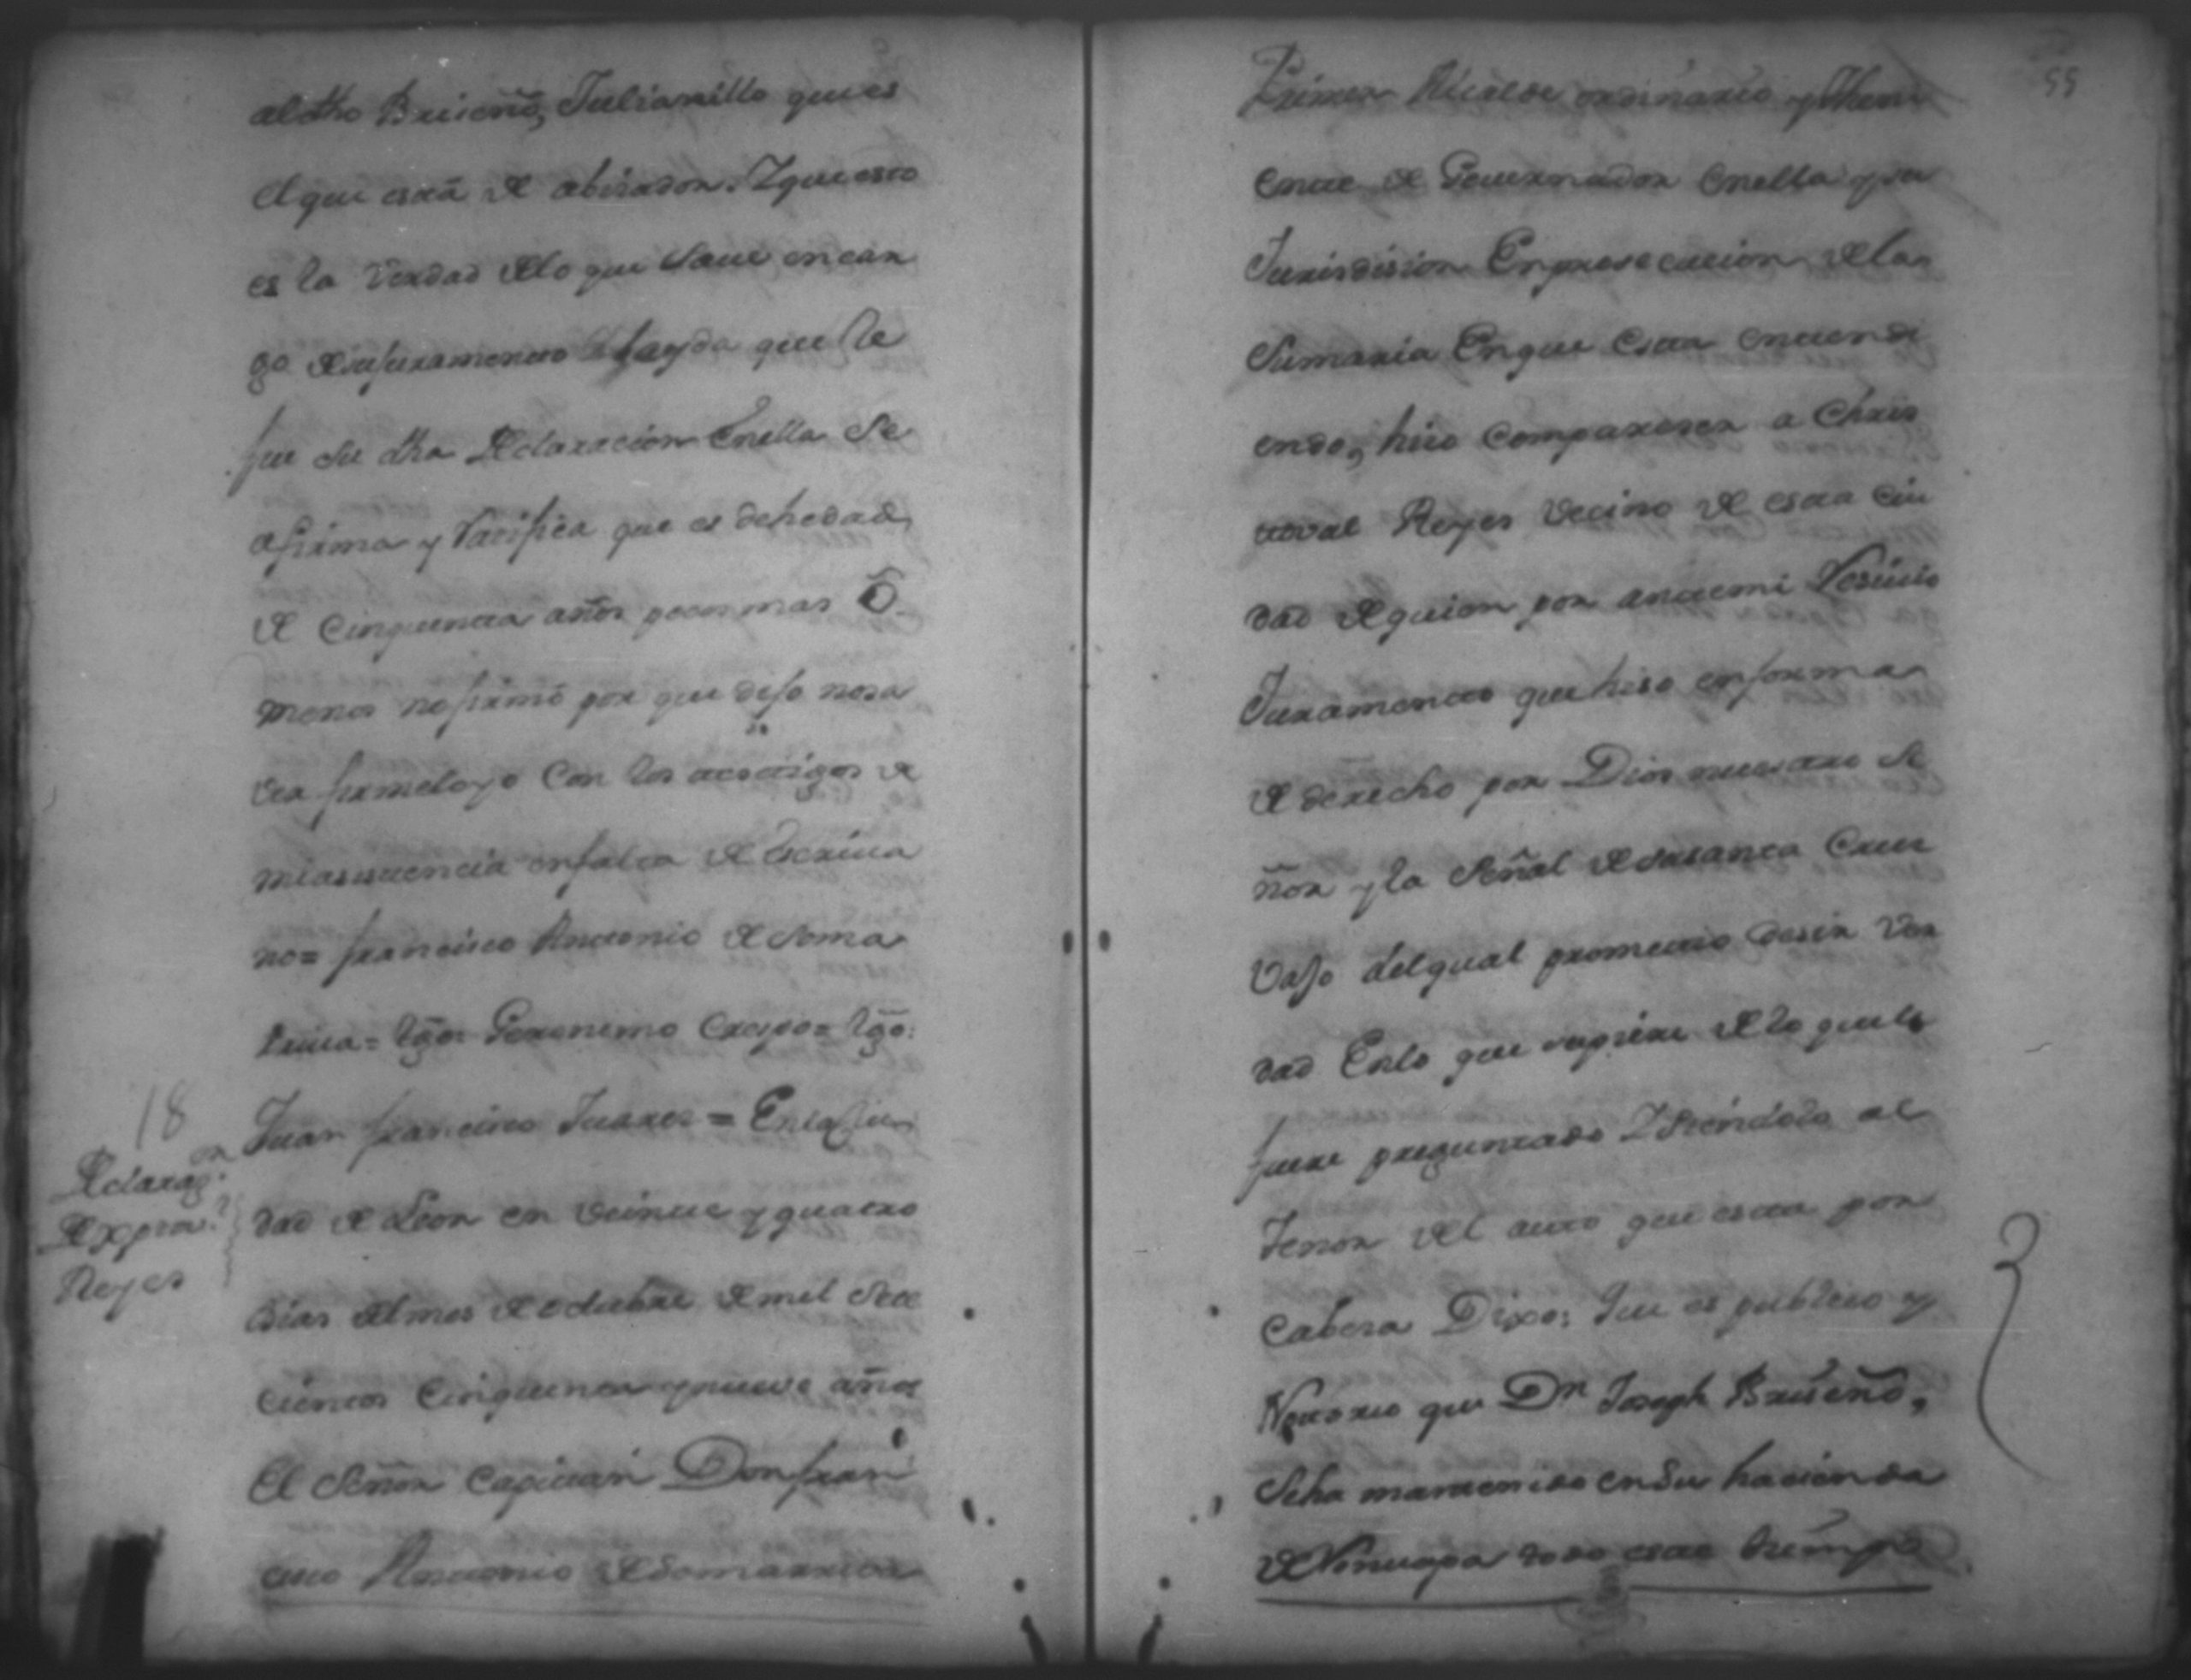 al dho Briseño, Julianillo que es
el que esta de abisador. Y que esto
es la Verdad de lo que saue en car
go de su juramento que le
fue su dha Declaracion Enella se
afirma y Ratifica que es de hedad
de Cinquenta años pocos mas Ó
menos no firmó por que dijo no sa
ver firmelo yo Con los testigos de
mi asistencia en falta de Escriua
no= francisco Antonio de Soma
rriua= tgo= Geronimo Crespo= tgo:
Juan francisco Juares = En la Ciu
dad de Leon en veinte y quatro
dias del mes de octubre de mil Sete
cientos Cinquenta y nueve años
El Señor Capitan Don fran
cisco Antonio de Somarriua
18
Declaraz.on
de Xptoval
Reyes
55
Primer Alcalde ordinario y theni
ente de Gouernador Enella y su
Jurisdision En prosecucion de la
Sumaria En que Esta entendi
endo, hiso Compareser a Chris
toval Reyes Vecino de esta Ciu
dad de quien por ante mi Resiuio
Juramento que hiso en forma
de derecho por Dios nuestro Se
ñor y la Señal de su santa Cruz
Vajo del qual prometio desir Ver
dad Enlo que supiere de lo que le
fuere preguntado Y Siéndolo al
tenor del auto que esta por
Cabesa Dixo: Que es publico y
Notorio que Dn Joseph Briseño,
Se ha mantenido en su hacienda
de todo este tiempo